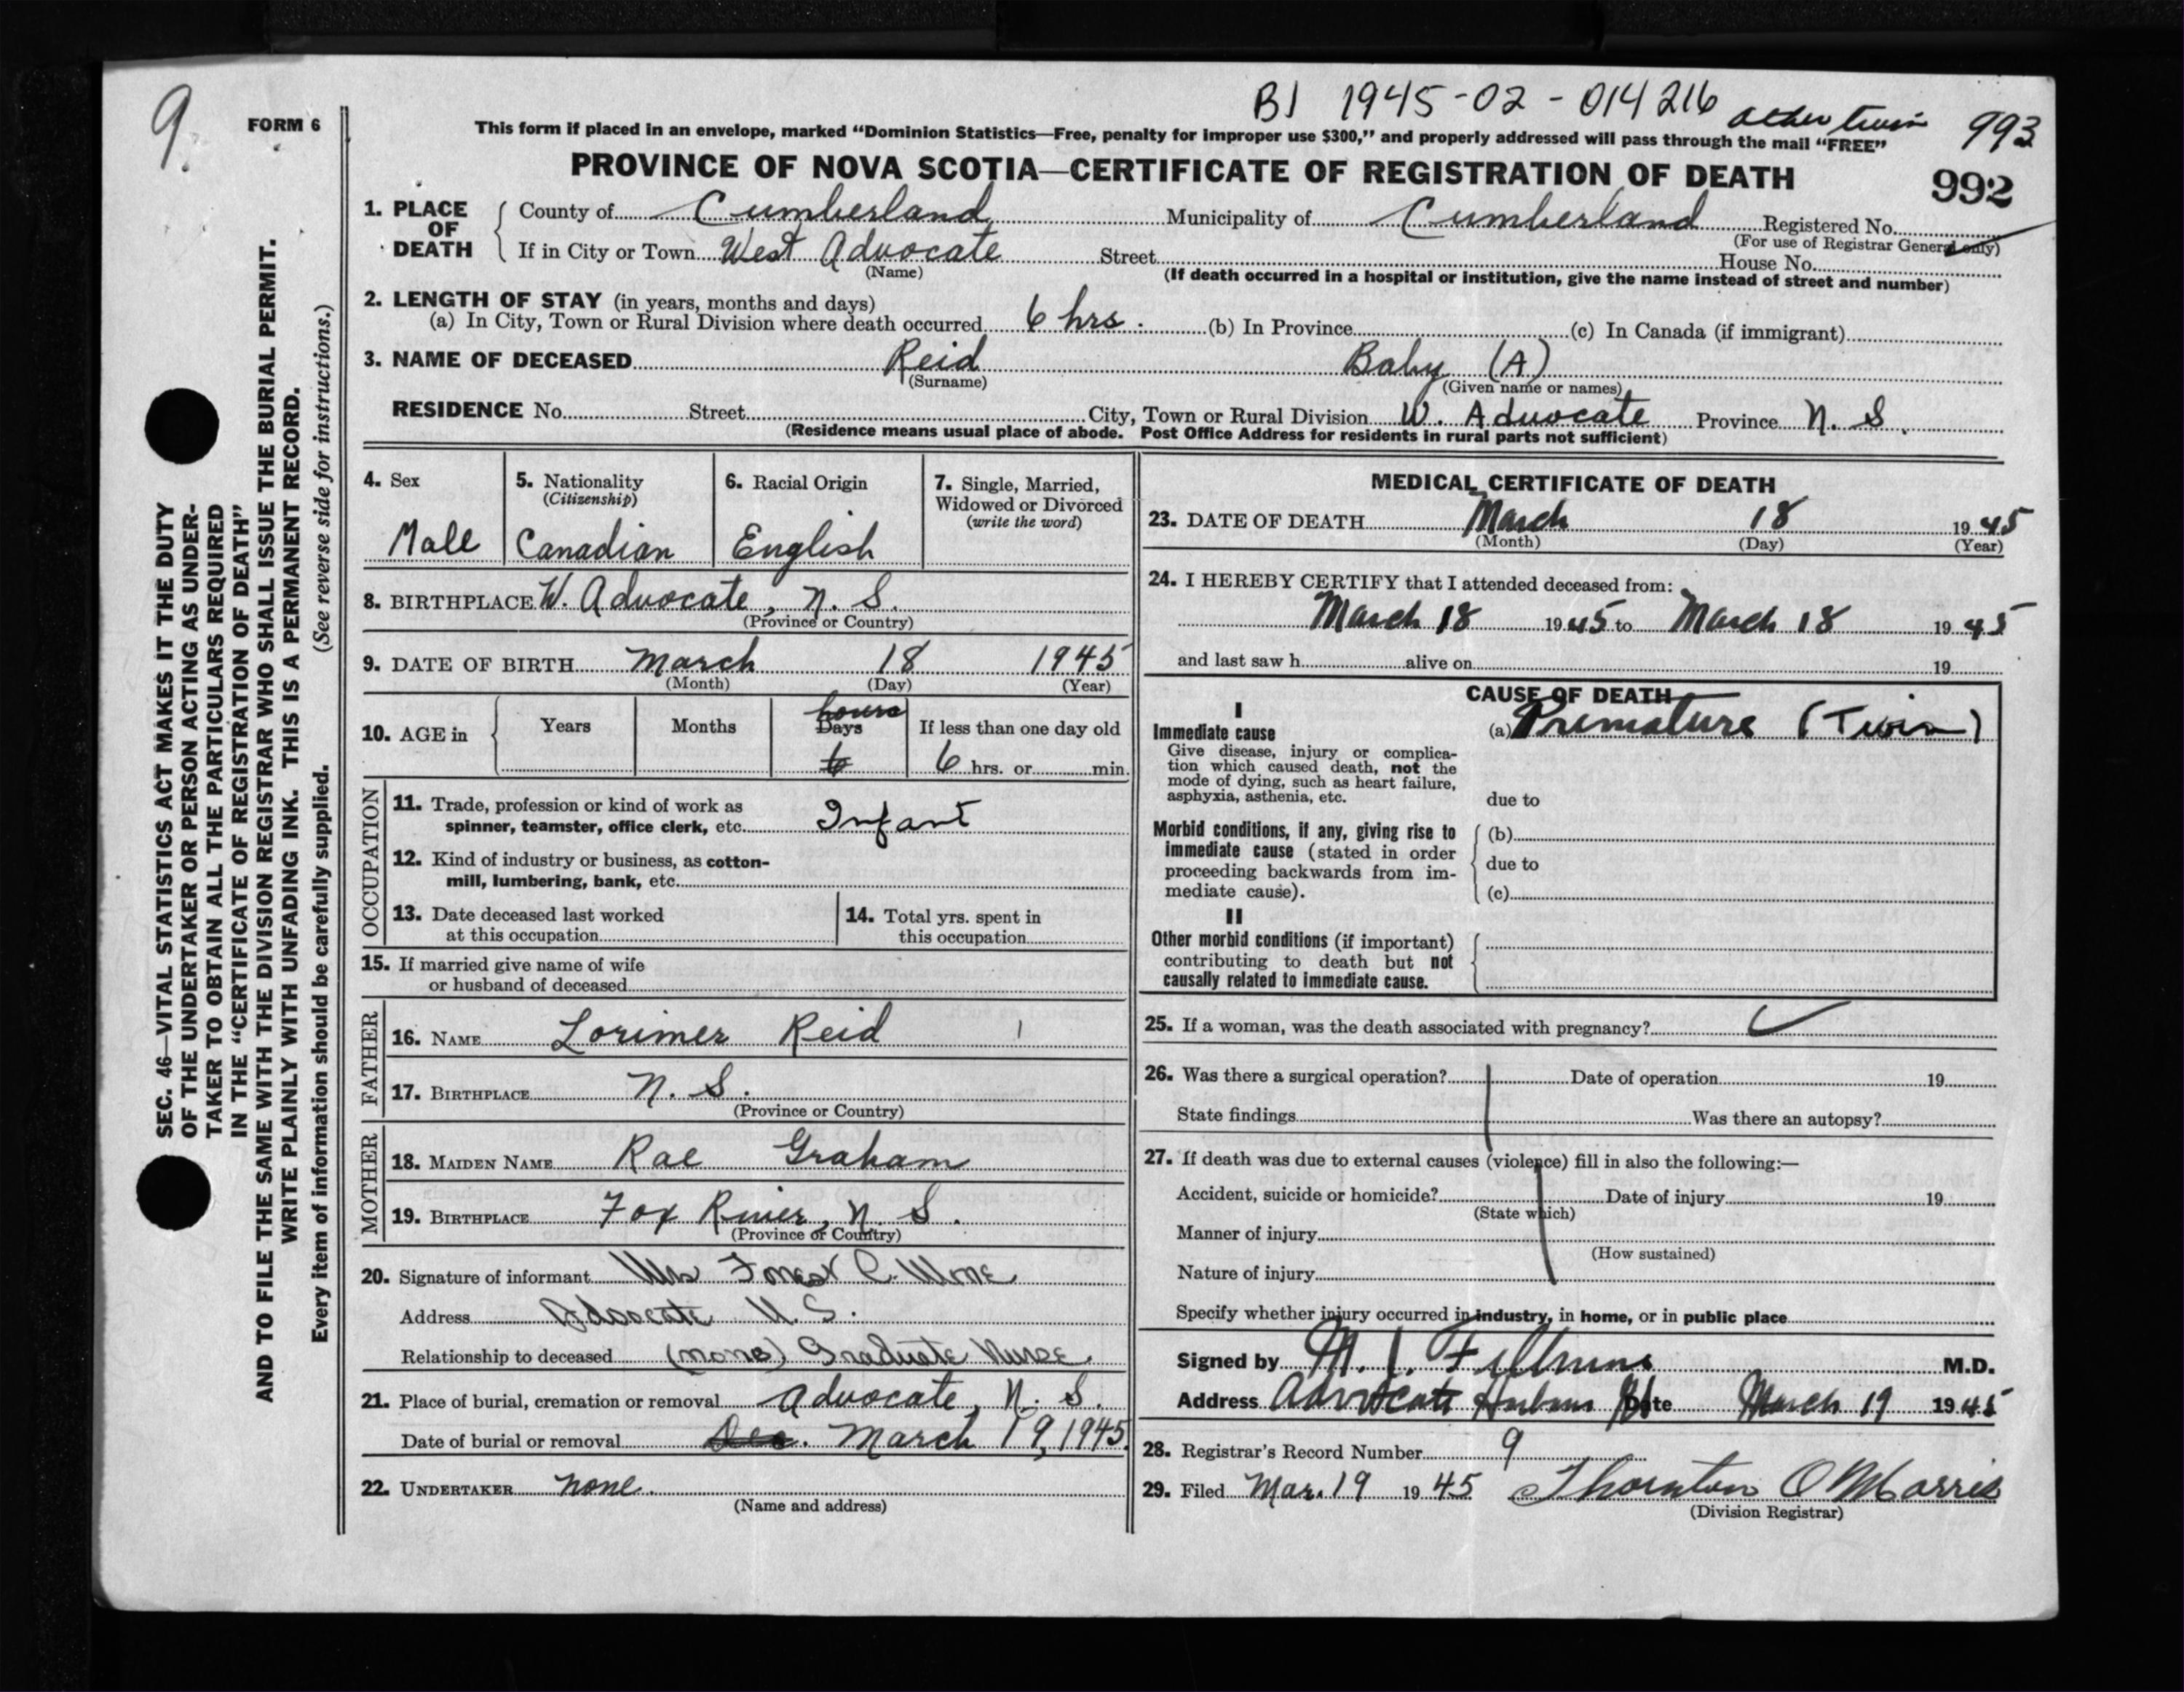 BJ 1945-02-014216 other twin 993
9.
FORM 6
This form if placed in an envelope, marked "Dominion Statistics—Free, penalty for improper use $300," and properly addressed will pass through the mail "FREE"
PROVINCE OF NOVA SCOTIA—CERTIFICATE OF REGISTRATION OF DEATH
992
1. PLACE OF DEATH
County of Cumberland Municipality of Cumberland Registered No.
(For use of Registrar General only)
If in City or Town West Advocate Street House No.
(Name)
(If death occurred in a hospital or institution, give the name instead of street and number)
2. LENGTH OF STAY (in years, months and days)
(a) In City, Town or Rural Division where death occurred 6 hrs. (b) In Province (c) In Canada (if immigrant)
3. NAME OF DECEASED Reid Baby (A)
(Surname) (Given name or names)
RESIDENCE No. Street City, Town or Rural Division W. Advocate Province N. S.
(Residence means usual place of abode. Post Office Address for residents in rural parts not sufficient)
4. Sex
Male
5. Nationality
(Citizenship)
Canadian
6. Racial Origin
English
7. Single, Married,
Widowed or Divorced
(write the word)
8. BIRTHPLACE W. Advocate, N. S.
(Province or Country)
9. DATE OF BIRTH March 18 1945
(Month) (Day) (Year)
10. AGE in
Years
Months
hours
Days
6
If less than one day old
6 hrs. or min.
OCCUPATION
11. Trade, profession or kind of work as
spinner, teamster, office clerk, etc. Infant
12. Kind of industry or business, as cotton-
mill, lumbering, bank, etc.
13. Date deceased last worked
at this occupation
14. Total yrs. spent in
this occupation
15. If married give name of wife
or husband of deceased
FATHER
16. NAME Lorimer Reid
17. BIRTHPLACE N. S.
(Province or Country)
MOTHER
18. MAIDEN NAME Rae Graham
19. BIRTHPLACE Fox River, N. S.
(Province or Country)
20. Signature of informant Mrs Forest C.
Address Advocate N. S.
Relationship to deceased (none) Graduate Nurse.
21. Place of burial, cremation or removal Advocate, N. S.
Date of burial or removal Dec. March 19, 1945.
22. UNDERTAKER none.
(Name and address)
MEDICAL CERTIFICATE OF DEATH
23. DATE OF DEATH March 18 1945
(Month) (Day) (Year)
24. I HEREBY CERTIFY that I attended deceased from:
March 18 1945 to March 18 1945
and last saw h alive on 19
CAUSE OF DEATH
I
Immediate cause
Give disease, injury or complica-
tion which caused death, not the
mode of dying, such as heart failure,
asphyxia, asthenia, etc.
(a) Premature (Twin)
due to
Morbid conditions, if any, giving rise to
immediate cause (stated in order
proceeding backwards from im-
mediate cause).
(b)
due to
(c)
II
Other morbid conditions (if important)
contributing to death but not
causally related to immediate cause.
25. If a woman, was the death associated with pregnancy?
26. Was there a surgical operation? Date of operation 19
State findings Was there an autopsy?
27. If death was due to external causes (violence) fill in also the following:—
Accident, suicide or homicide? Date of injury 19
(State which)
Manner of injury
(How sustained)
Nature of injury
Specify whether injury occurred in industry, in home, or in public place
Signed by M. J. M.D.
Address Advocate Harbour NS Date March 19 1945
28. Registrar's Record Number 9
29. Filed Mar. 19 1945 Thornton O Morris
(Division Registrar)
SEC. 46—VITAL STATISTICS ACT MAKES IT THE DUTY
OF THE UNDERTAKER OR PERSON ACTING AS UNDER-
TAKER TO OBTAIN ALL THE PARTICULARS REQUIRED
IN THE "CERTIFICATE OF REGISTRATION OF DEATH"
AND TO FILE THE SAME WITH THE DIVISION REGISTRAR WHO SHALL ISSUE THE BURIAL PERMIT.
WRITE PLAINLY WITH UNFADING INK. THIS IS A PERMANENT RECORD.
Every item of information should be carefully supplied. (See reverse side for instructions.)